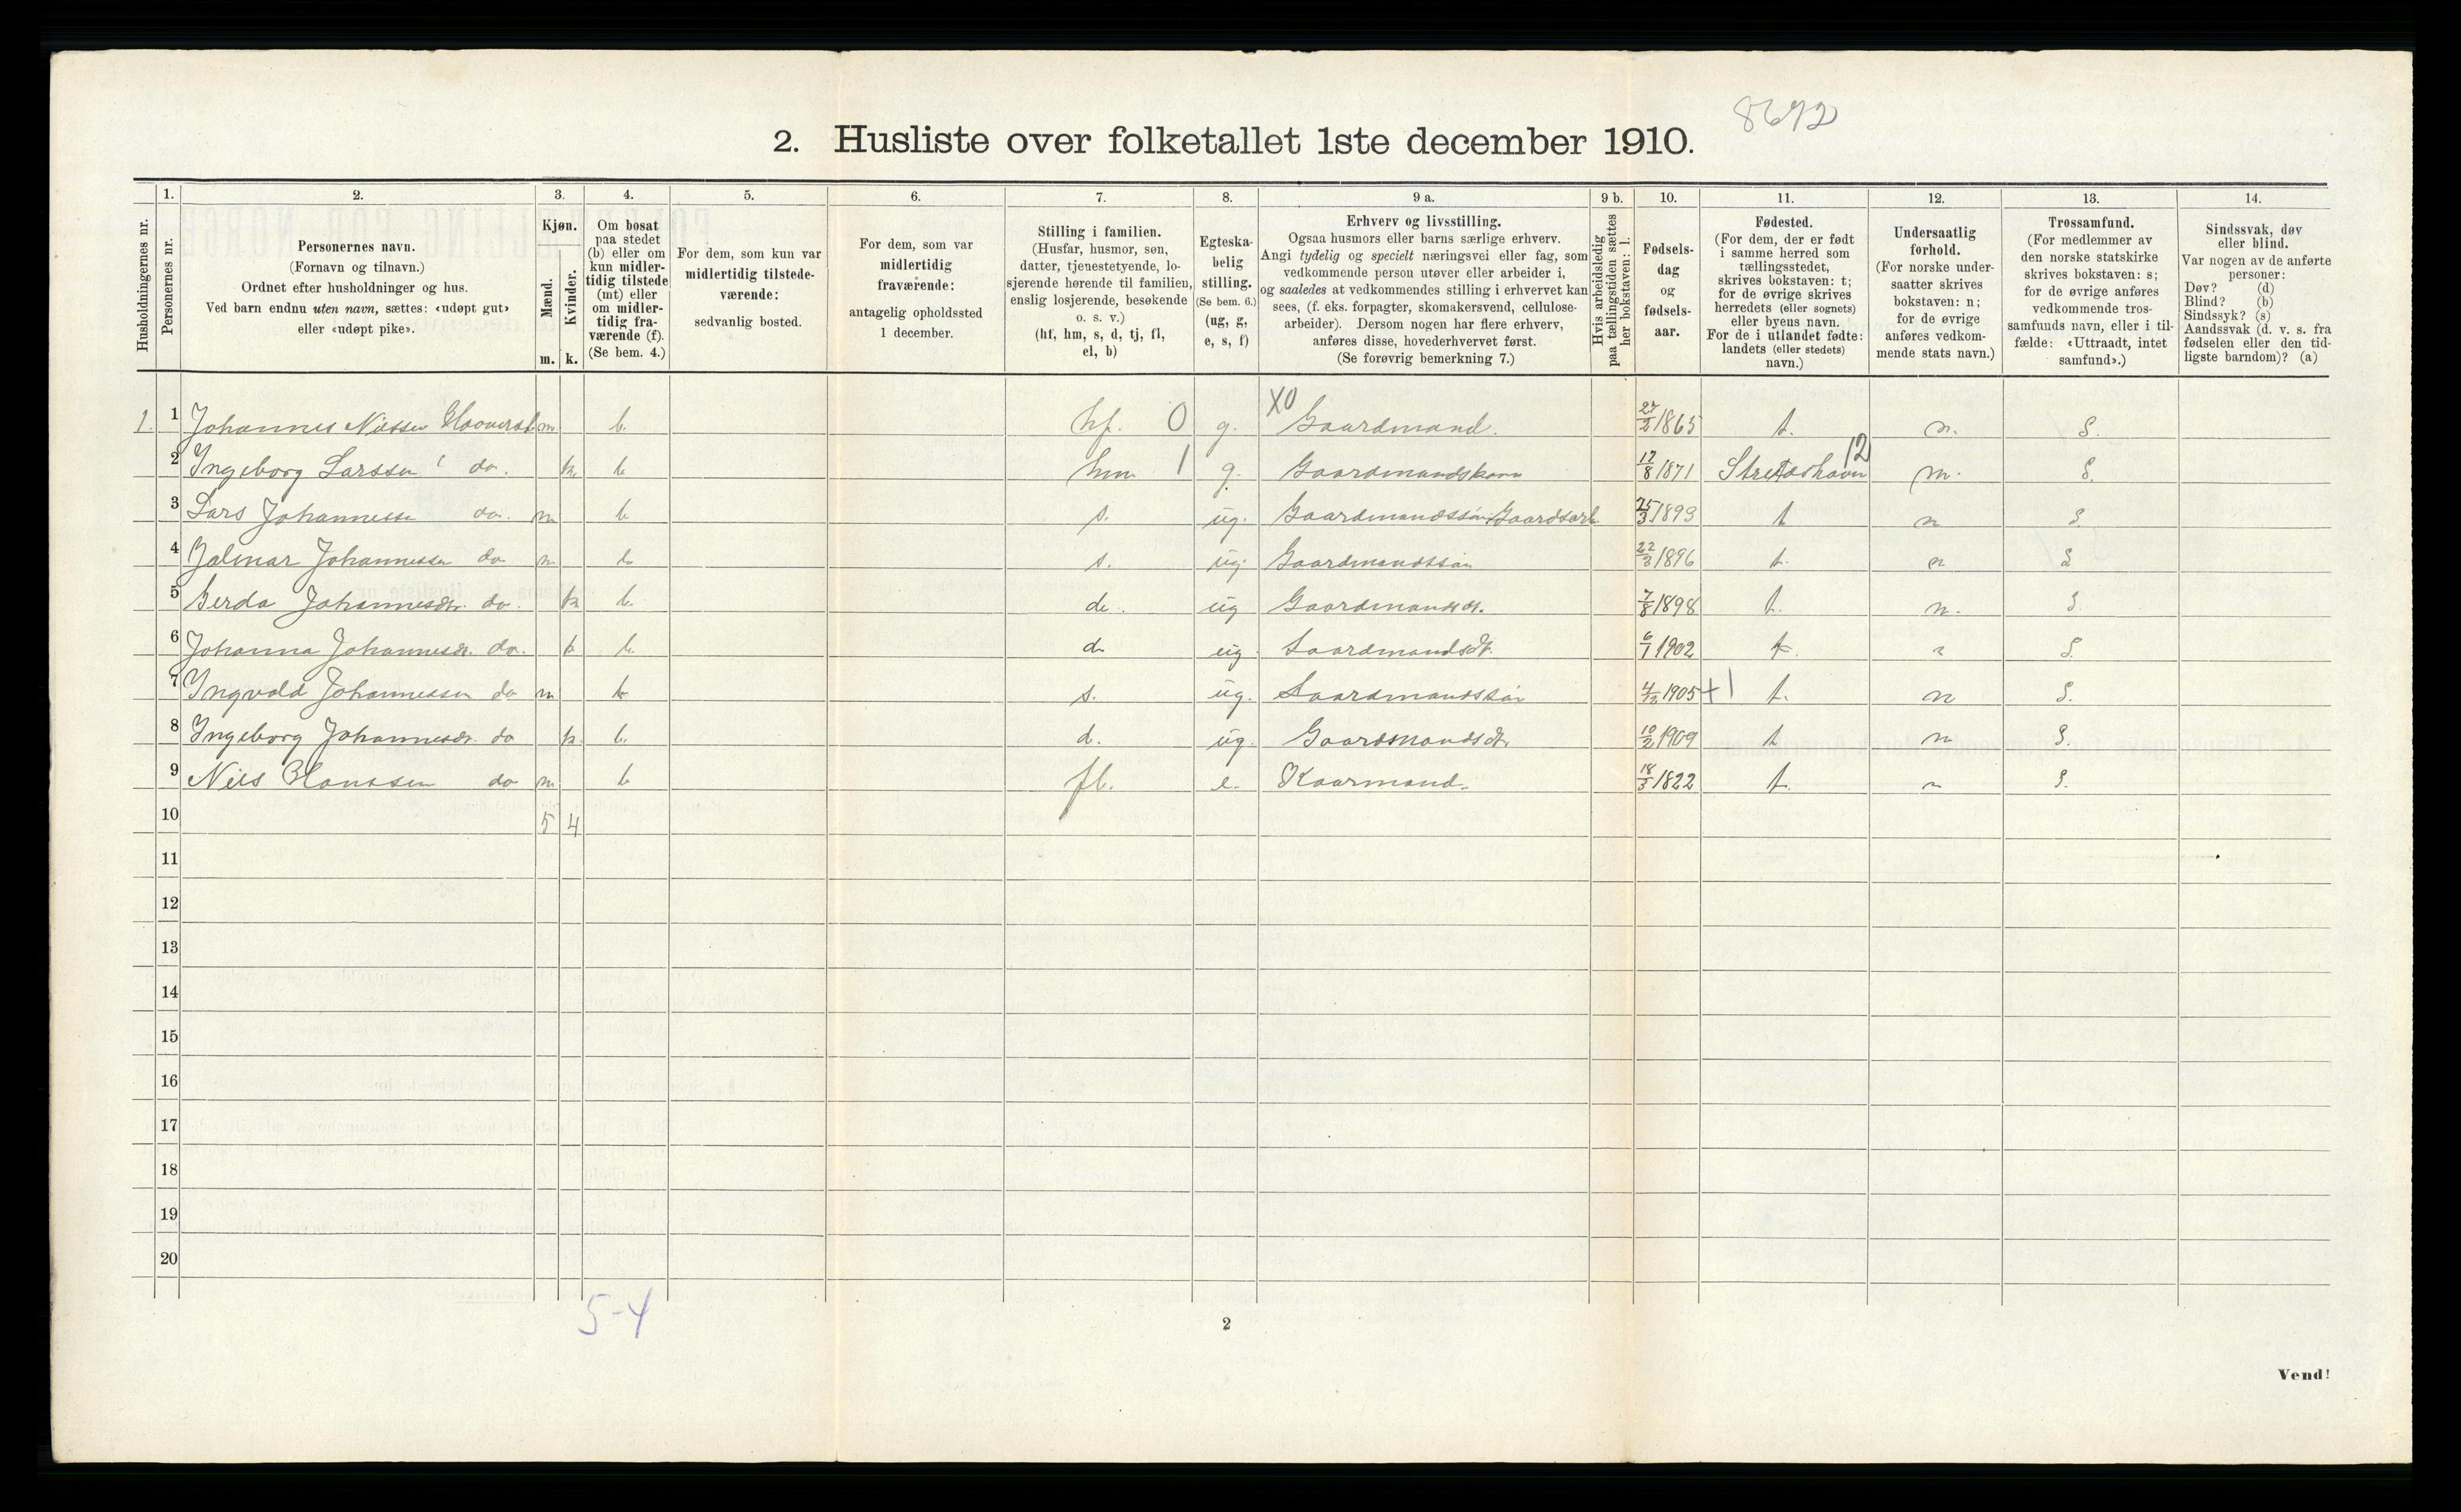 8692
2. Husliste over folketallet 1ste december 1910.
Husholdningernes nr.
1.
Personernes nr.
2.
Personernes navn.
(Fornavn og tilnavn.)
Ordnet efter husholdninger og hus.
Ved barn endnu uten navn, sættes: «udøpt gut»
eller «udøpt pike».
3.
Kjøn.
Mænd.
Kvinder.
m. k.
4.
Om bosat
paa stedet
(b) eller om
kun midler-
tidig tilstede
(mt) eller
om midler-
tidig fra-
værende (f).
(Se bem. 4.)
5.
For dem, som kun var
midlertidig tilstede-
værende:
sedvanlig bosted.
6.
For dem, som var
midlertidig
fraværende:
antagelig opholdssted
1 december.
7.
Stilling i familien.
(Husfar, husmor, søn,
datter, tjenestetyende, lo-
sjerende hørende til familien,
enslig losjerende, besøkende
o. s. v.)
(hf, hm, s, d, tj, fl,
el, b)
8.
Egteska-
belig
stilling.
(Se bem. 6.)
(ug, g,
e, s, f)
9 a.
Erhverv og livsstilling.
Ogsaa husmors eller barns særlige erhverv.
Angi tydelig og specielt næringsvei eller fag, som
vedkommende person utøver eller arbeider i,
og saaledes at vedkommendes stilling i erhvervet kan
sees, (f. eks. forpagter, skomakersvend, cellulose-
arbeider). Dersom nogen har flere erhverv,
anføres disse, hovederhvervet først.
(Se forøvrig bemerkning 7.)
9 b.
Hvis arbeidsledig
paa tællingstiden sættes
her bokstaven: l.
10.
Fødsels-
dag
og
fødsels-
aar.
11.
Fødested.
(For dem, der er født
i samme herred som
tællingsstedet,
skrives bokstaven: t;
for de øvrige skrives
herredets (eller sognets)
eller byens navn.
For de i utlandet fødte:
landets (eller stedets)
navn.)
12.
Undersaatlig
forhold.
(For norske under-
saatter skrives
bokstaven: n;
for de øvrige
anføres vedkom-
mende stats navn.)
13.
Trossamfund.
(For medlemmer av
den norske statskirke
skrives bokstaven: s;
for de øvrige anføres
vedkommende tros-
samfunds navn, eller i til-
fælde: «Uttraadt, intet
samfund».)
14.
Sindssvak, døv
eller blind.
Var nogen av de anførte
personer:
Døv? (d)
Blind? (b)
Sindssyk? (s)
Aandssvak (d. v. s. fra
fødselen eller den tid-
ligste barndom)? (a)
1. 1 Johannes Nilssen m b. hf. 0 g. X0 Gaardmand. 27/2 1865 t. n. S.
2 Ingeborg Larssen do. k. b hm 1 g. Gaardmandskone 17/8 1871 12 m. S.
3 Lars Johannessen do. m. b. s. ug. Gaardmandssøn Gaardsarb 25/3 1893 t n S.
4 Jalmar Johannessen do m b. s. ug. Gaardmandssøn 22/3 1896 t. n S
5 Gerda Johannesdt. do. k b. d. ug Gaardmandsdt. 7/8 1898 t. n. S.
6 Johanna Johannesdt. do. k b. d. ug Gaardmandsdt. 6/1 1902 t. n S.
7 Ingvald Johannessen do m b s. ug. Gaardmandssøn 4/12 1905 +1 t. n S.
8 Ingeborg Johannesdt. do k. b. d. ug. Gaardmandsdt. 10/2 1909 t n S.
9 Nils Hanssen do m b fl. e. Kaarmand. 18/5 1822 t. n S.
10 5 4
11
12
13
14
15
16
17
18
19
20
5-4
2
Vend!